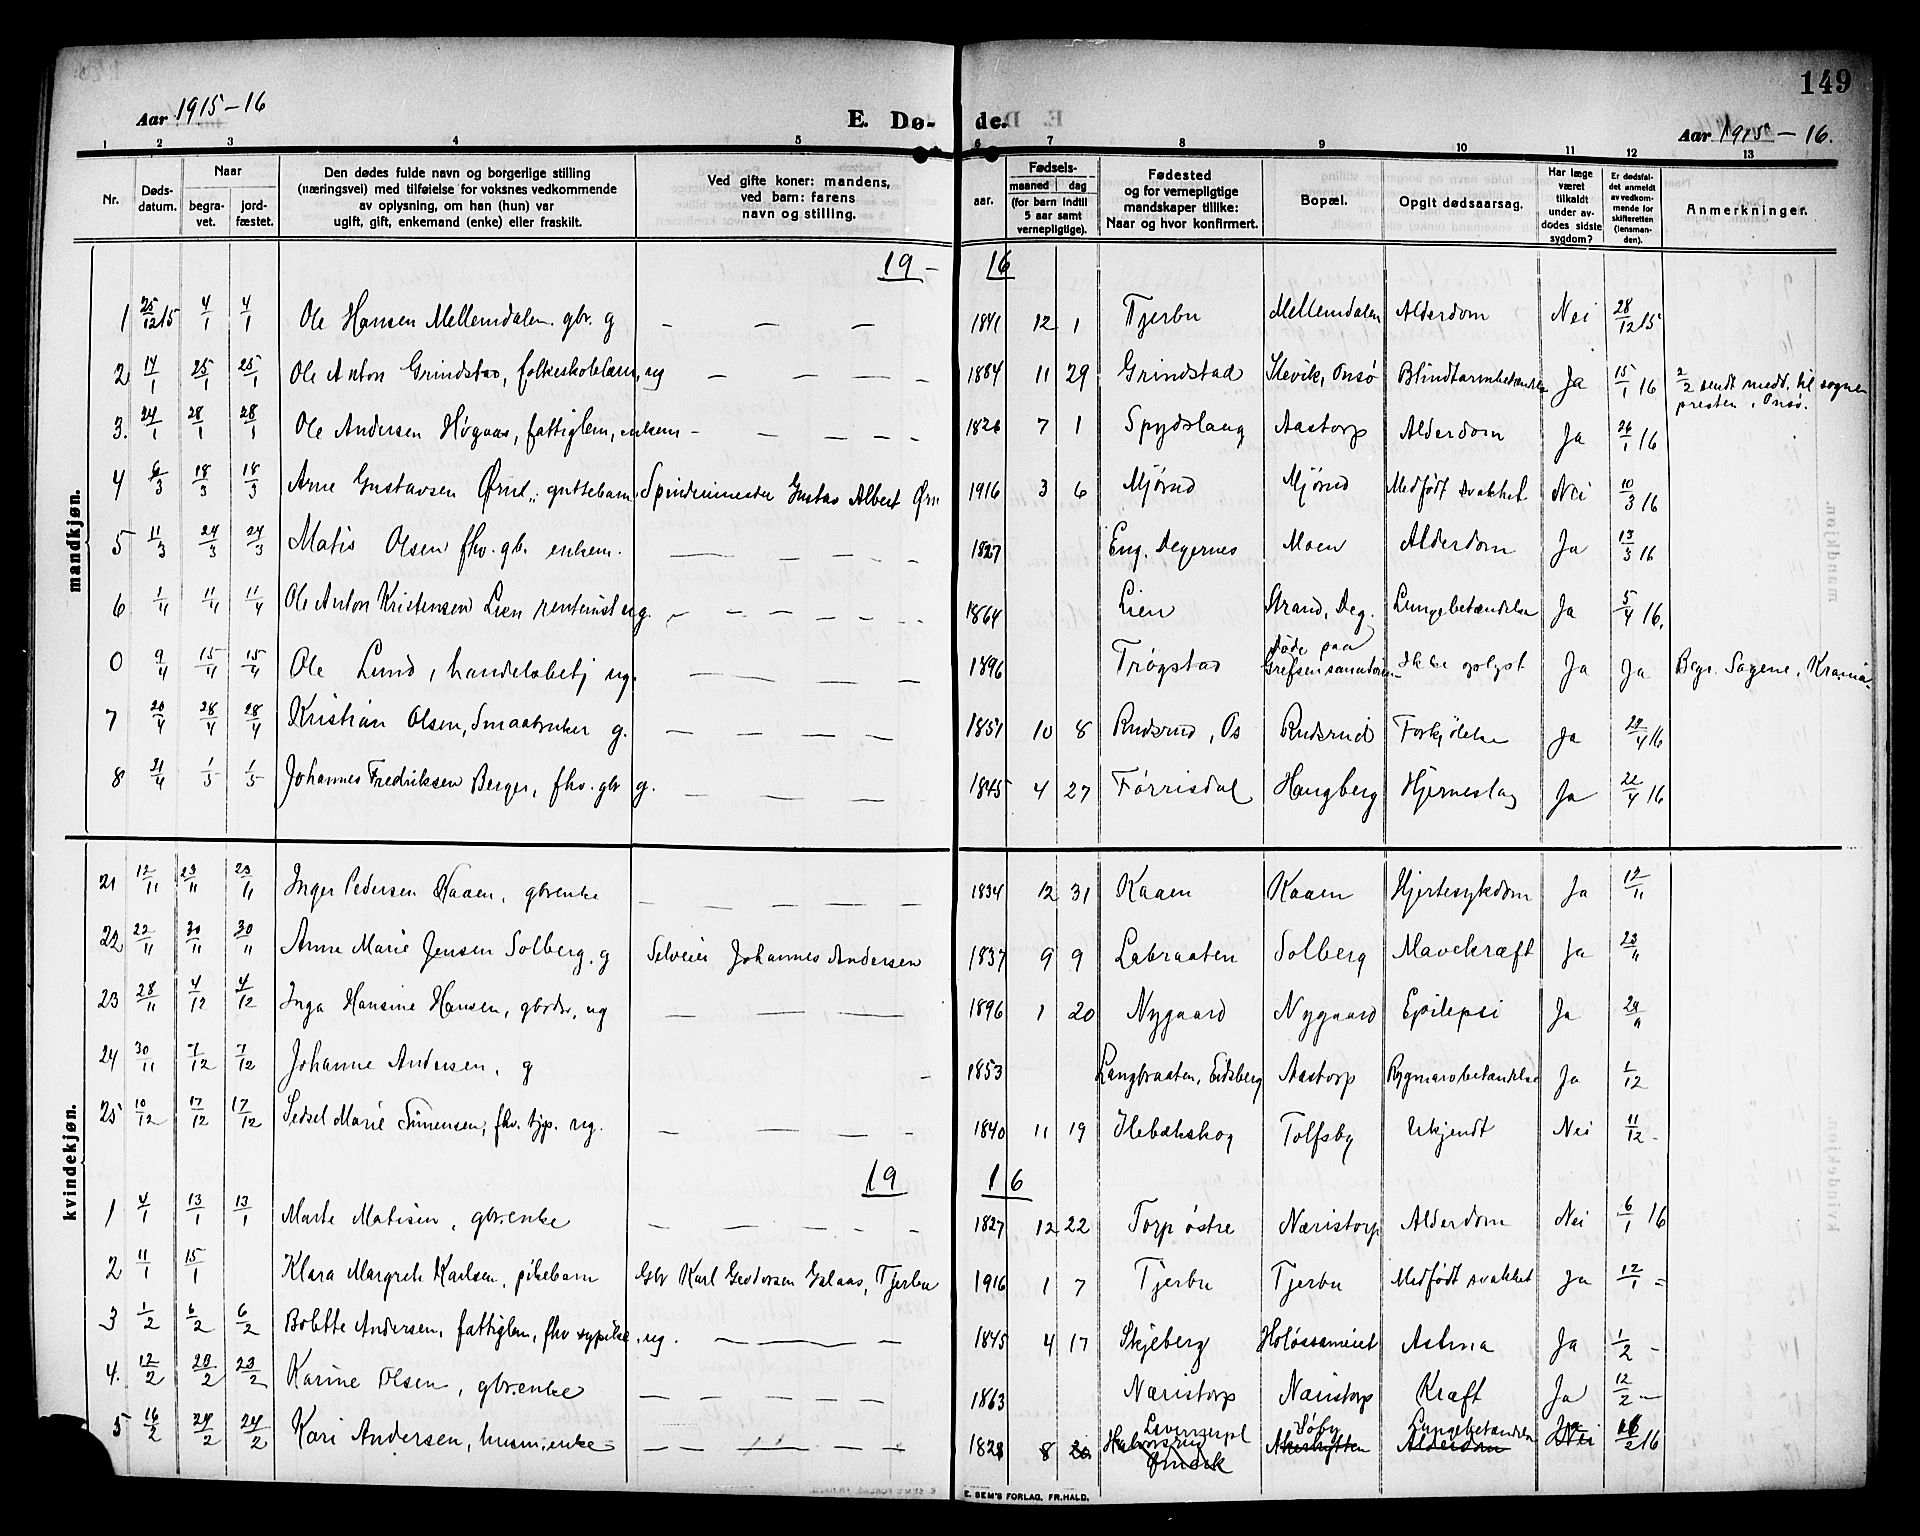 149
Aar 1915-16
E. Dø- de.
Aar 1915-16.
1 2 3 4 5 6 7 8 9 10 11 12 13
Nr.
Døds-
datum.
Naar
begra-
vet.
jord-
fæstet.
Den dødes fulde navn og borgerlige stilling
(næringsvei) med tilføielse for voksnes vedkommende
av oplysning, om han (hun) var
ugift, gift, enkemand (enke) eller fraskilt.
Ved gifte koner: mandens,
ved barn: farens
navn og stilling.
Fødsels-
aar.
maaned dag
(for barn indtil
5 aar samt
vernepligtige).
Fødested
og for vernepligtige
mandskaper tillike:
Naar og hvor konfirmert.
Bopæl.
Opgit dødsaarsag.
Har læge
været
tilkaldt
under av-
dødes sidste
sygdom?
Er dødsfal-
det anmeldt
av vedkom-
mende for
skifteretten
(lensman-
den).
Anmerkninger.
mandkjøn.
19 - 16
1 25/12 15 4/1 4/1 Ole Hansen Mellemdalen. gbr. g — — — 1841 12 1 Tjerbu Mellemdalen Alderdom Nei 28/12 15
2 17/1 25/1 25/1 Ole Anton Grindstad, folkeskolelærer, ug — — — 1884 11 29 Grindstad Slevik, Onsø Blindtarmbetændelse Ja 15/1 16 2/2 sendt medd. til sogne
presten i Onsø.
3. 24/1 28/1 28/1 Ole Andersen Høgaas, fattiglem, enkem — — — — 1826 7 1 Spydslaug Aastorp Alderdom Ja 26/1 16
4 6/3 18/3 18/3 Arne Gustavsen Ørne, guttebarn Spindemester Gustav Albert Ørn 1916 3 6 Mjørud Mjørud Medfødt svakhet Nei 10/3 16
5 11/3 24/3 24/3 Matis Olsen fhv. gb. enkem. — — — 1827 Eng, Degernes Moen Alderdom Ja 13/3 16
6 1/4 11/4 11/4 Ole Anton Kristensen Lien rentenist ug. — — — 1864 Lien Strand, Deg. Lungebetændelse Ja 5/4 16.
0 9/4 15/4 15/4 Ole Lund, handelsbetj ug. — — — 1896 Trøgstad Døde paa
Grefsensanatorium Ikke oplyst Ja Ja Begr. Sagene, Krania.
7 20/4 28/4 28/4 Kristian Olsen, Smaabruker g. — — — 1851 10 8 Rudsrud, Os Rudsrud Forkjølelse Ja 28/4 16
8 21/4 1/5 1/5 Johannes Fredriksen Berger, fhv. gbr g. — — — 1845 4 27 Førrisdal Haugberg Hjerneslag Ja 22/4 16
kvindekjøn.
21 12/11 23/11 23/11 Inger Pedersen Kaaen, gbrenke — — — 1834 12 31 Kaaen Kaaen Hjertesykdom Ja 12/11
22 22/11 30/11 30/11 Anne Marie Jensen Solberg. g Selveier Johannes Andersen 1837 9 9 Labraaten Solberg Mavekræft Ja 23/11
23 28/11 4/12 4/12 Inga Hansine Hansen, gbrdtr, ug — — — 1896 1 20 Nygaard Nygaard Epilepsi Ja 29/11
24 30/11 7/12 7/12 Johanne Andersen, g — 1853 Langbraaten, Eidsberg Aastorp Rygmarvbetændelse Ja 1/12
25 10/12 17/12 17/12 Sedsel Marie Simensen, fhv. tjp. ug. — — — 1840 11 19 Ilebækskog Tolfsby Ukjendt Nei 11/12 -
19 16
1 4/1 13/1 13/1 Marte Matisen, gbrenke — — — 1827 12 22 Torp østre Næristorp Alderdom Nei 6/1 16
2 11/1 15/1 Klara Margrete Karlsen, pikebarn Gbr Karl Gudorsen Galaas, Tjerbu 1916 1 7 Tjerbu Tjerbu Medfødt svakhet Ja 12/1 =
3 1/2 6/2 6/2 Bolette Andersen, fattiglem, fhv sypike, ug. — — — 1845 4 17 Skjeberg Holøssameiet Astma Ja 1/2 -
4. 12/2 23/2 23/2 Karine Olsen, gbrenke — — — 1863 Næristorp Næristorp Kræft Ja 12/2 -
5 16/2 24/2 24/2 Kari Andersen, husm.enke — — — 1828 8 Søby Lungebetændelse Alderdom Nei 16/2 16
E. SEM'S FORLAG, FR.HALD.